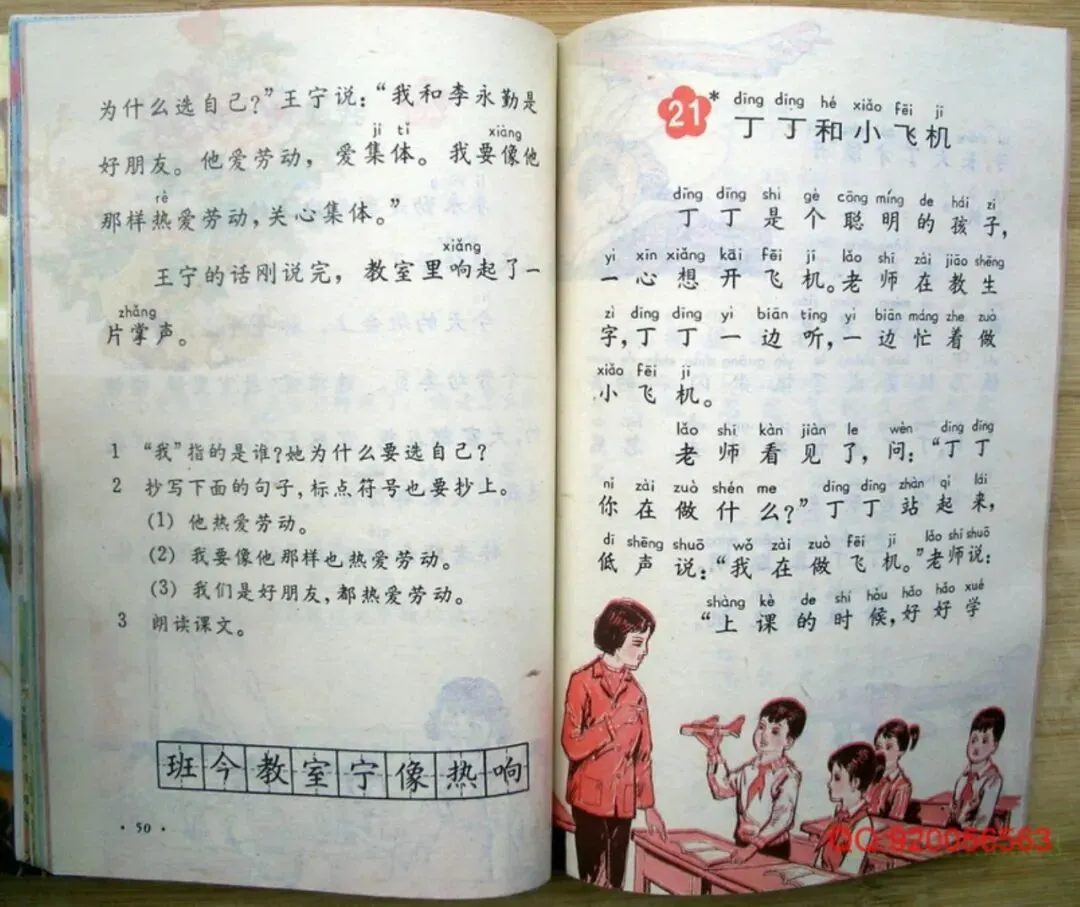 为什么选自己?”王宁说:“我和李永勤是
jí tǐ xiàng
好朋友。他爱劳动,爱集体。我要像他
rè
那样热爱劳动,关心集体。”
xiǎng
王宁的话刚说完,教室里响起了一
zhǎng
片掌声。
1 “我”指的是谁?她为什么要选自己?
2 抄写下面的句子,标点符号也要抄上。
(1) 他热爱劳动。
(2) 我要像他那样也热爱劳动。
(3) 我们是好朋友,都热爱劳动。
3 朗读课文。
班今教室宁像热响
·50·
21* dīng dīng hé xiǎo fēi jī
丁丁和小飞机
dīng dīng shì gè cōng míng de hái zi
丁丁是个聪明的孩子,
yì xīn xiǎng kāi fēi jī lǎo shī zài jiāo shēng
一心想开飞机。老师在教生
zì dīng dīng yì biān tīng yì biān máng zhe zuò
字,丁丁一边听,一边忙着做
xiǎo fēi jī
小飞机。
lǎo shī kàn jiàn le wèn dīng dīng
老师看见了,问:“丁丁
nǐ zài zuò shén me dīng dīng zhàn qǐ lái
你在做什么?”丁丁站起来,
dī shēng shuō wǒ zài zuò fēi jī lǎo shī shuō
低声说:“我在做飞机。”老师说:
shàng kè de shí hòu hǎo hǎo xué
“上课的时候,好好学
QQ:920056563